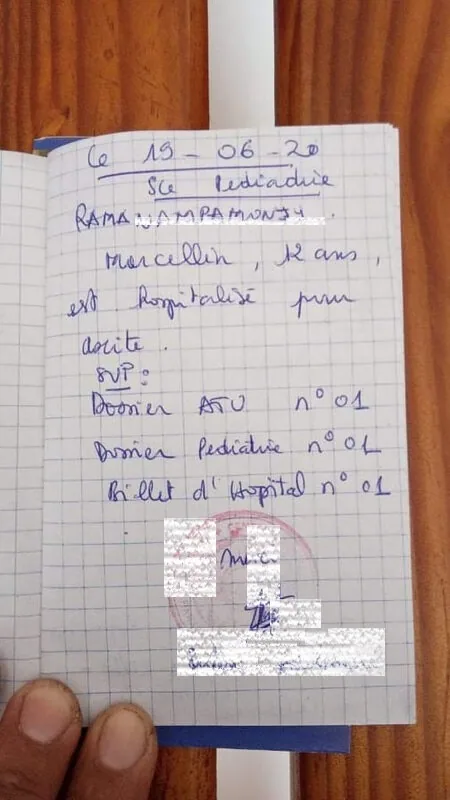 Le 19-06-20
Sce Pediadrie
Marcellin, 12 ans,
est hospitalisé pour
ascite.
SVP :
Dossier ATU n° 01
Dossier Pediatrie n° 01
Billet d'Hopital n° 01
Merci